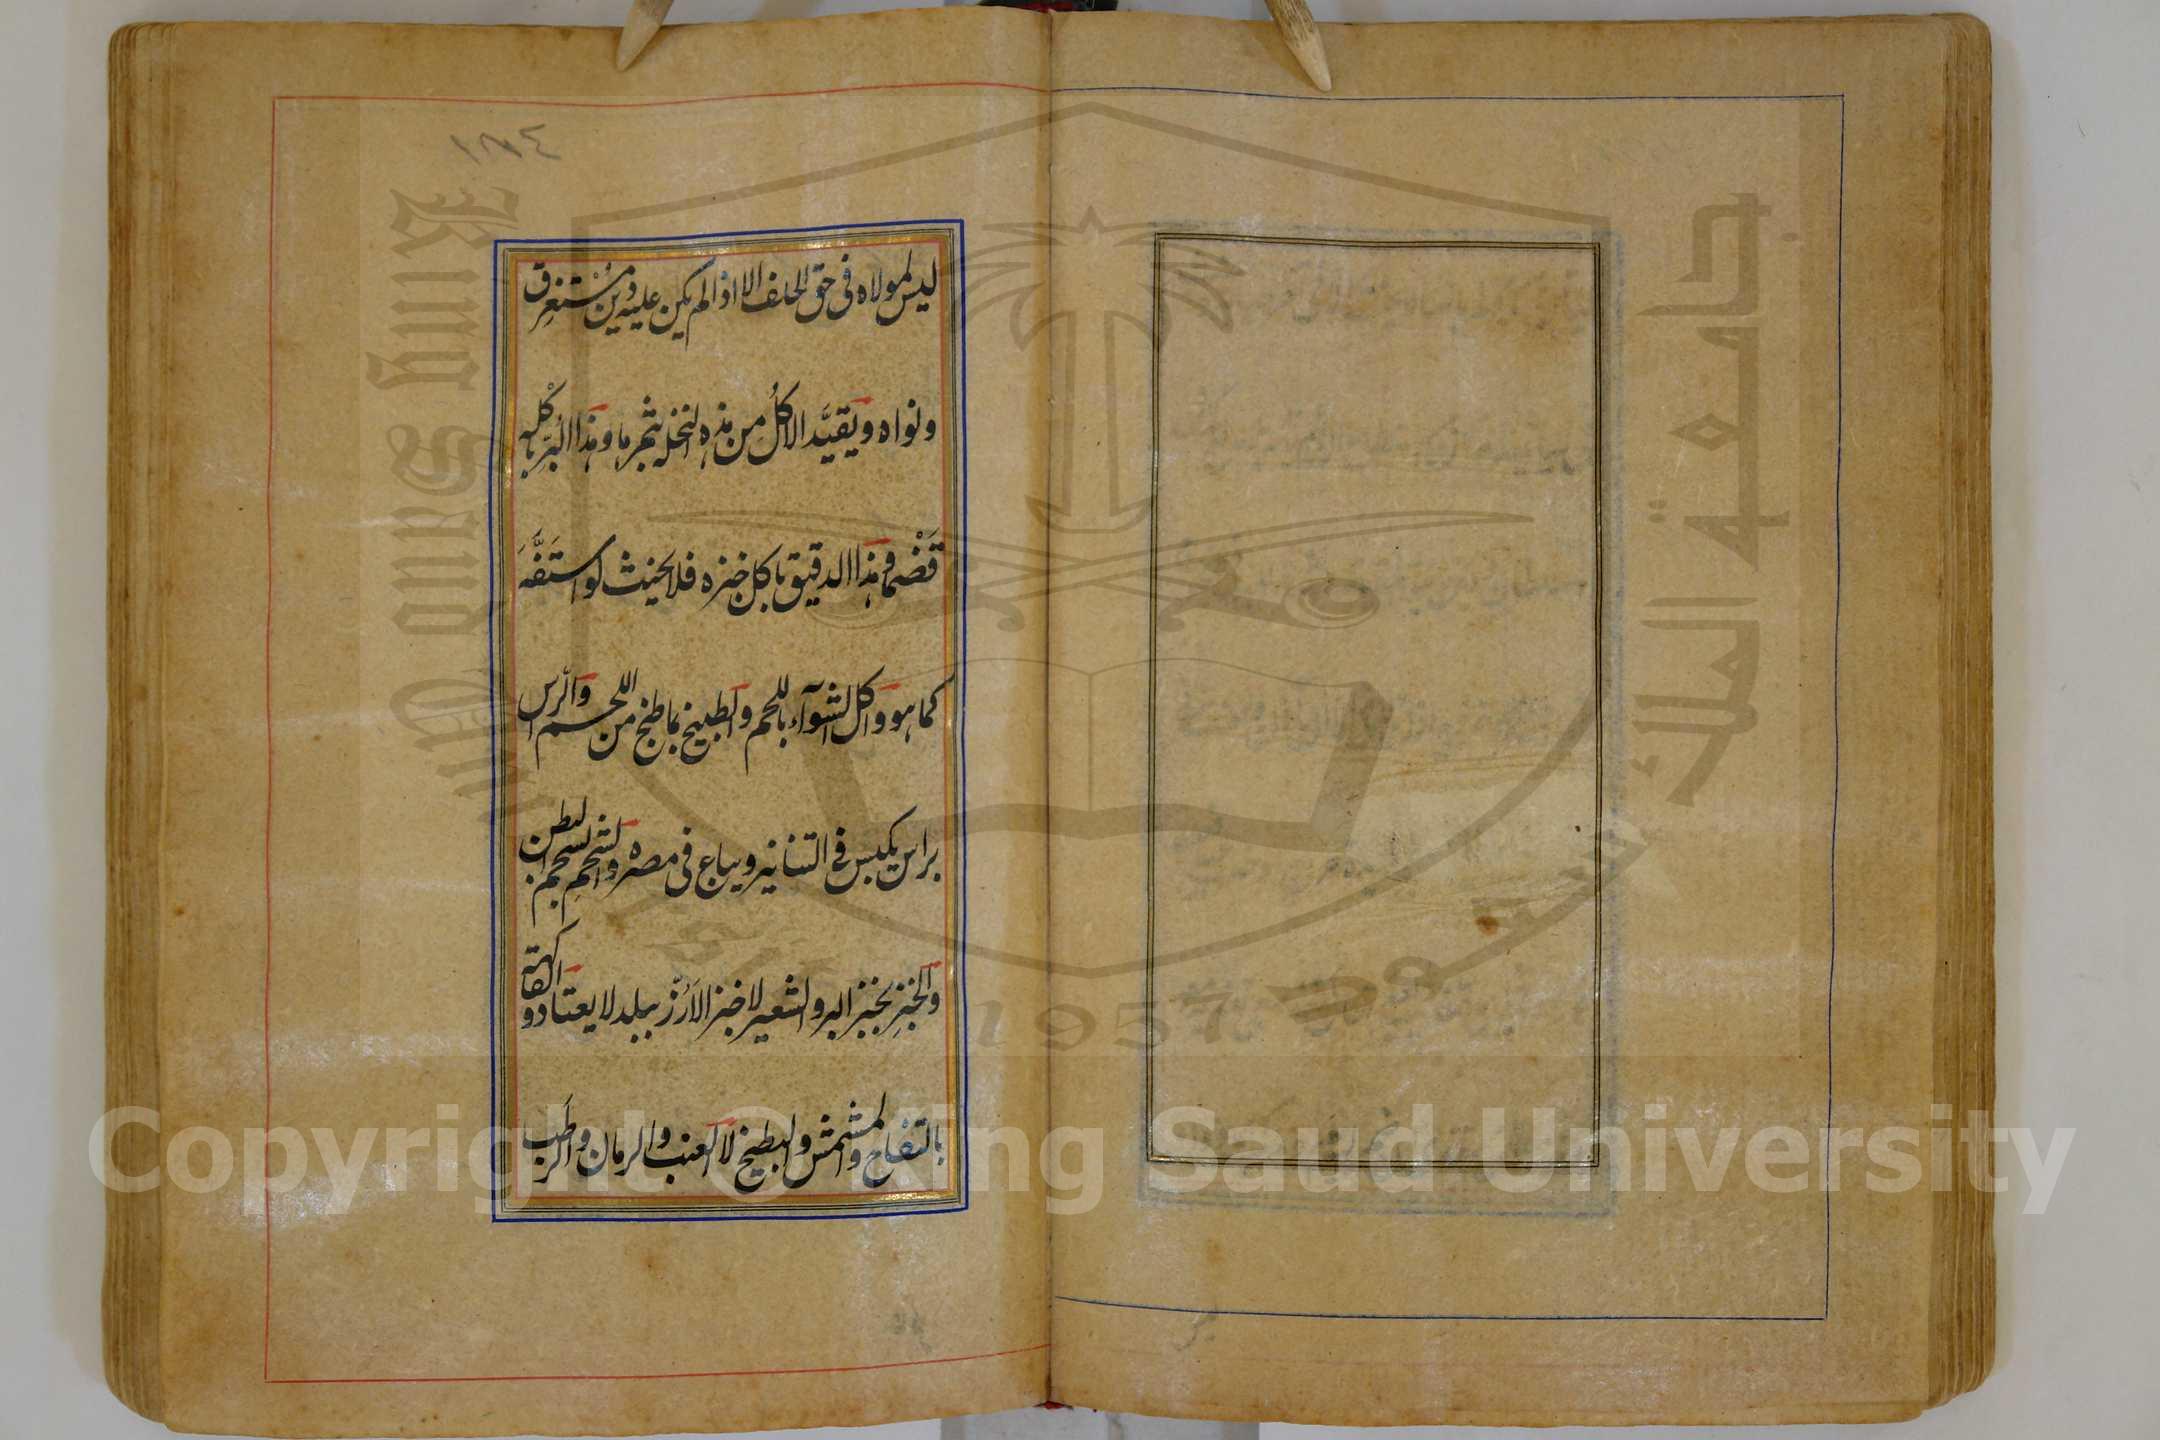 ١٨٤
ليس لمولاه في حق الحلف الا اذا لم يكن عليه دين مُستغرِق
ونواه ويقيَّد الاكلُ من هذه النخلة بثمرها وهذا البُرّ باكله
قَضْما وهذا الدقيق باكل خبزه فلا يحنث لو استَفَّهَ
كما هو واكل الشوآء باللحم والطبيخ بما طبخ من اللحم والرّاس
براس يكبس في التنانير ويباع في مصره والشحم لشحم البطن
والخبز بخبز البر والشعير لا خبز الاَرُزّ ببلد لا يعتاد والفاكهة
بالتفاح والمشمش والبطيخ لا العنب والرمان والرطَب
King Saud University
جامعة الملك سعود
1957
Copyright © King Saud University